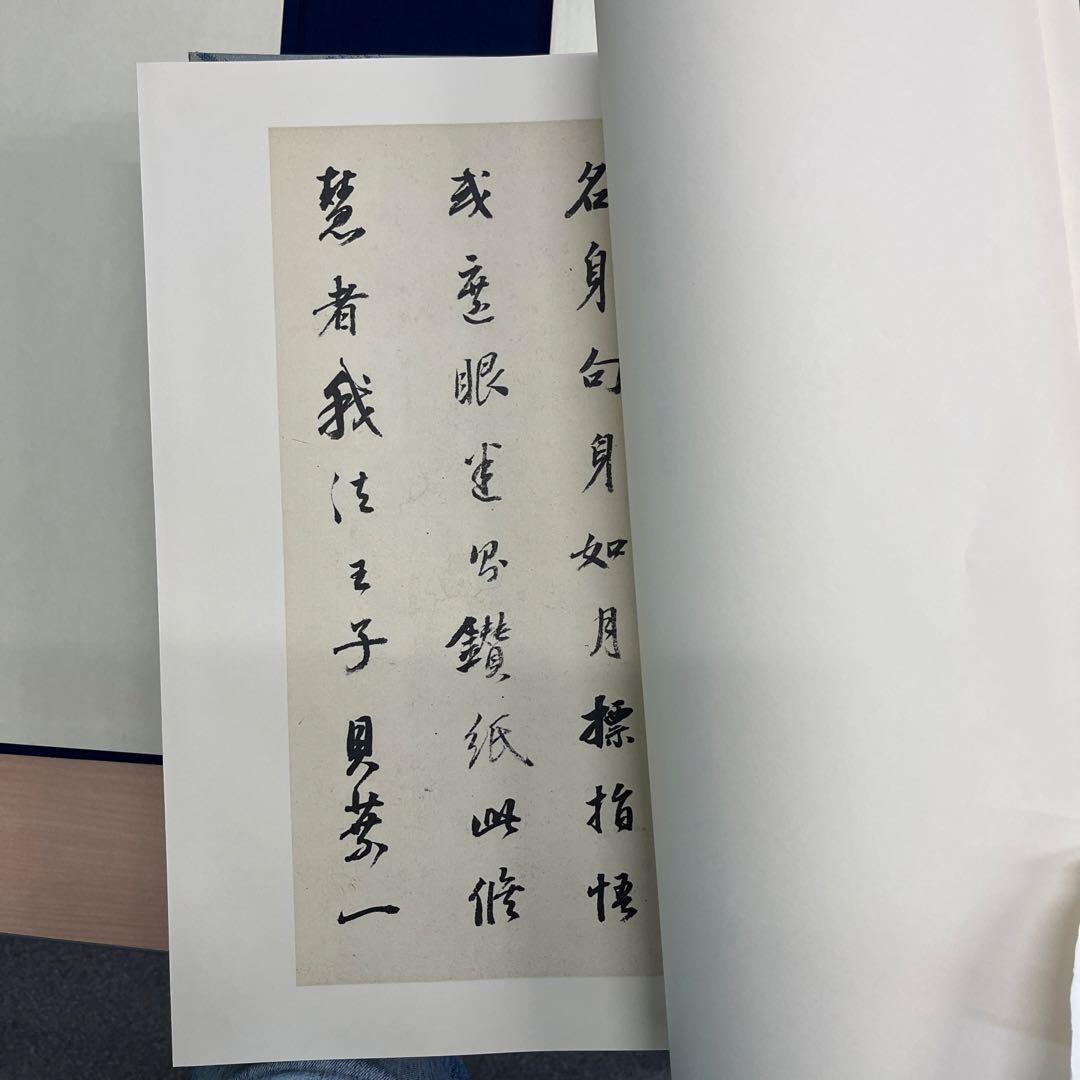 名身句身如月標指悟
或遮眼迷鑽紙此修
慧者我法王子貝葉一